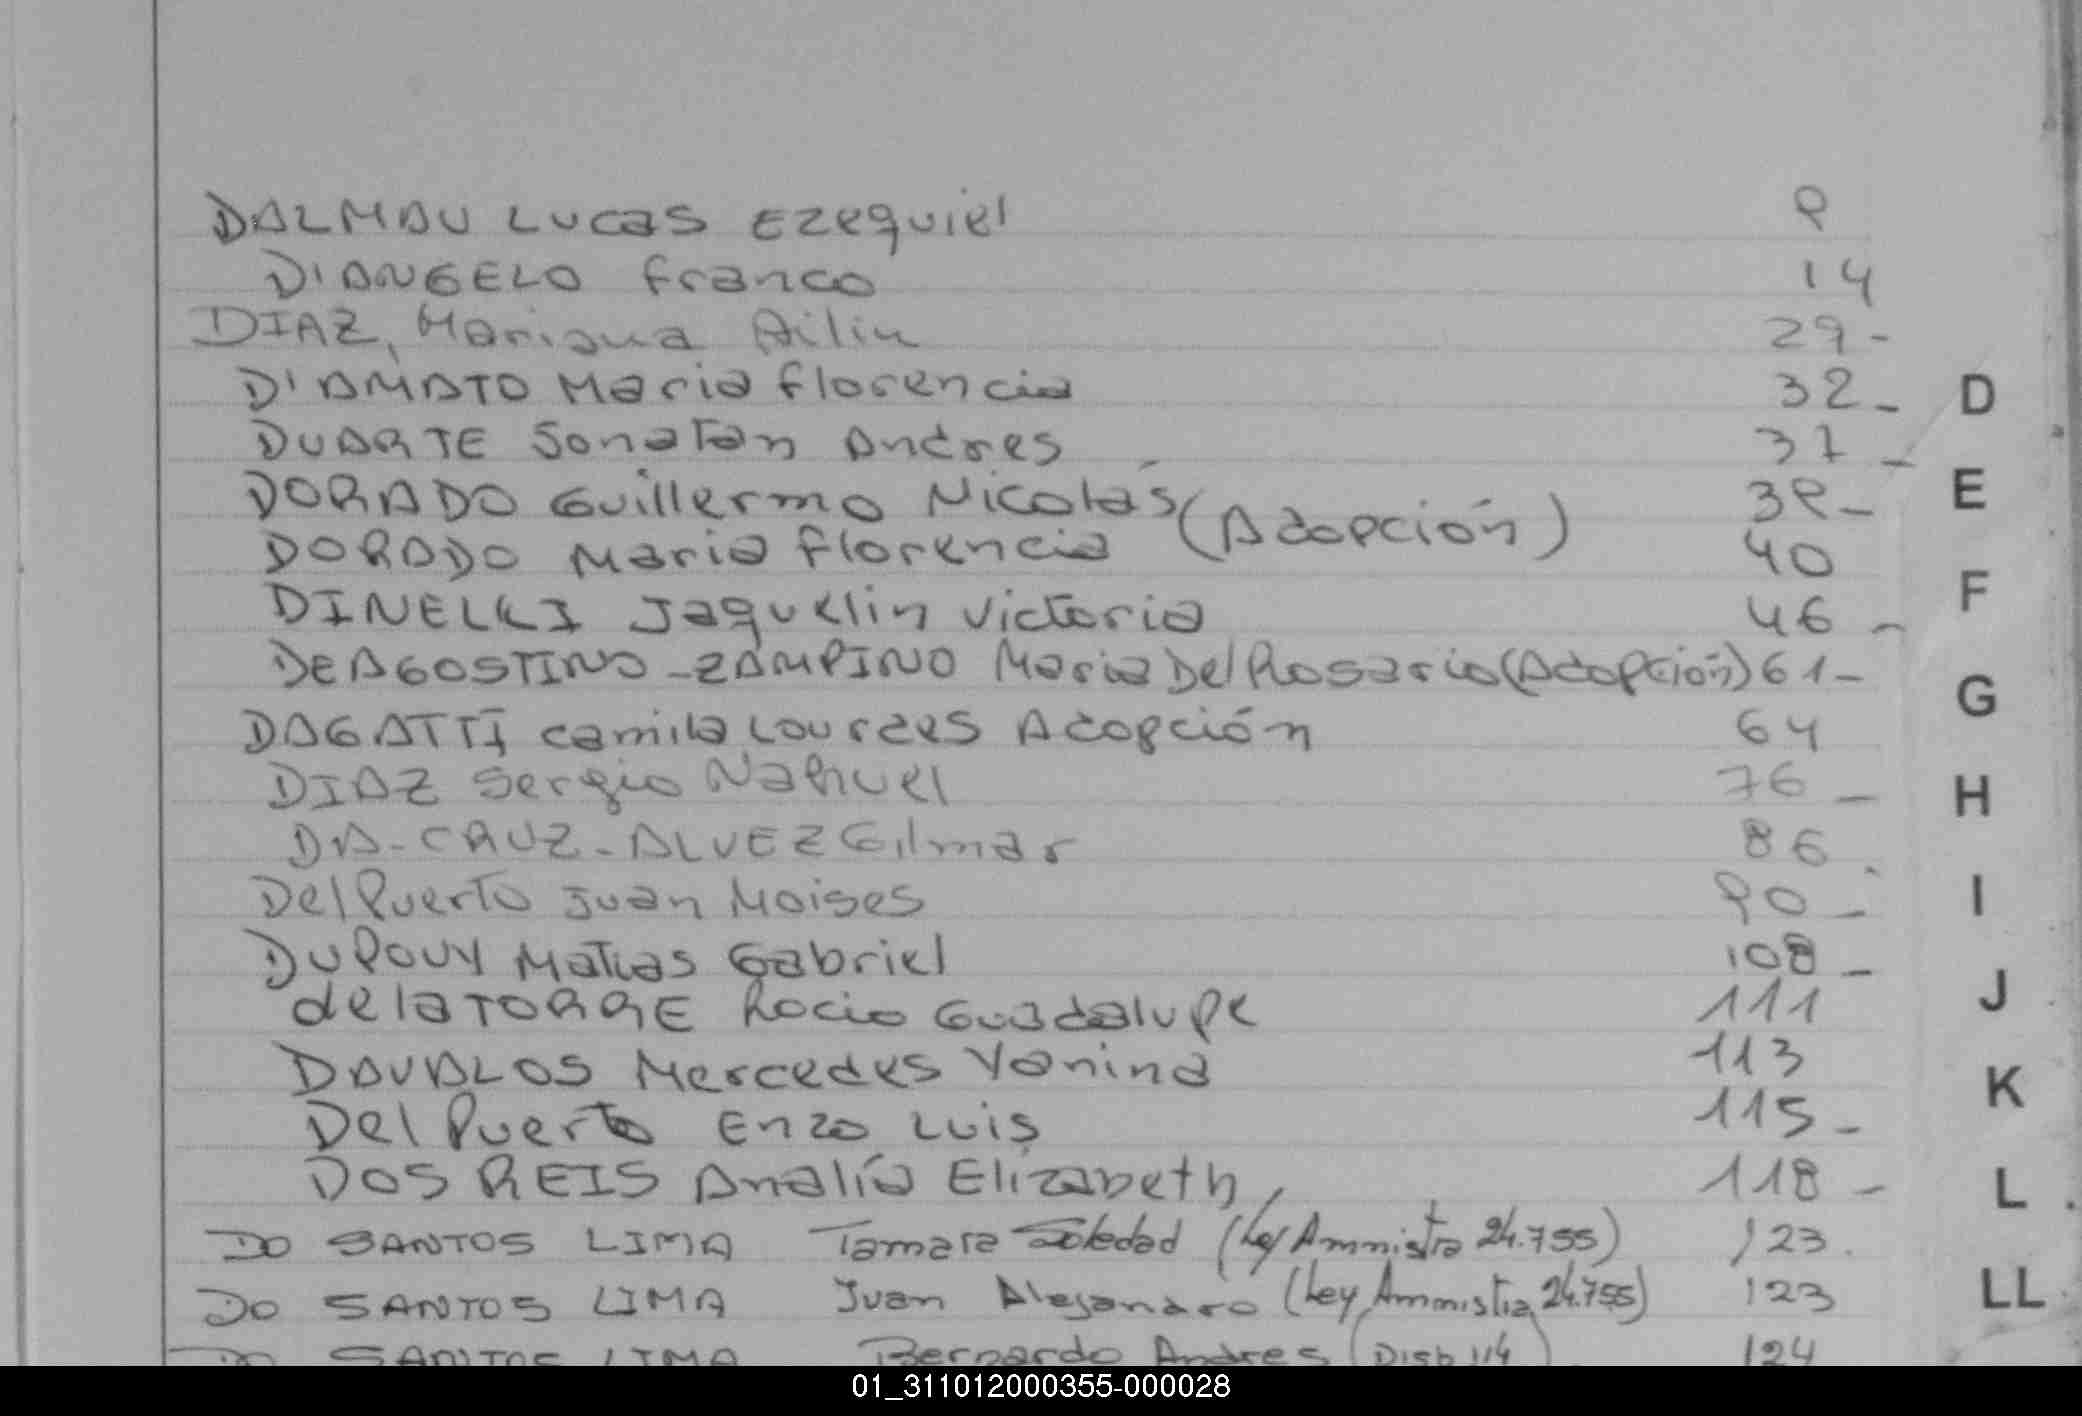 DALMAU Lucas Ezequiel 9
D'ANGELO Franco 14
DIAZ, Mariana Ailin 29-
D'AMATO Maria Florencia 32-
DUARTE Jonatan Andres 37-
DORADO Guillermo Nicolás 39-
DORADO Maria Florencia (Adopción) 40
DINELLI Jaquelin Victoria 46-
DEAGOSTINO-ZAMPINO Maria Del Rosario (Adopción) 61-
DAGATTI Camila Lourdes Adopción 64
DIAZ Sergio Nahuel 76-
DA-CRUZ-ALVEZ Gilmar 86.
Del Puerto Juan Moises 90-
DUPOUY Matias Gabriel 108-
de la TORRE Rocio Guadalupe 111
DAVALOS Mercedes Yanina 113
Del Puerto Enzo Luis 115-
DOS REIS Analía Elizabeth, 118-
DO SANTOS LIMA Tamara Soledad (Ley Ammistia 24.755) 123.
DO SANTOS LIMA Juan Alejandro (Ley Ammistia 24.755) 123
DO SANTOS LIMA Bernardo Andres (Disp 114) 124
D
E
F
G
H
I
J
K
L
LL
01_311012000355-000028